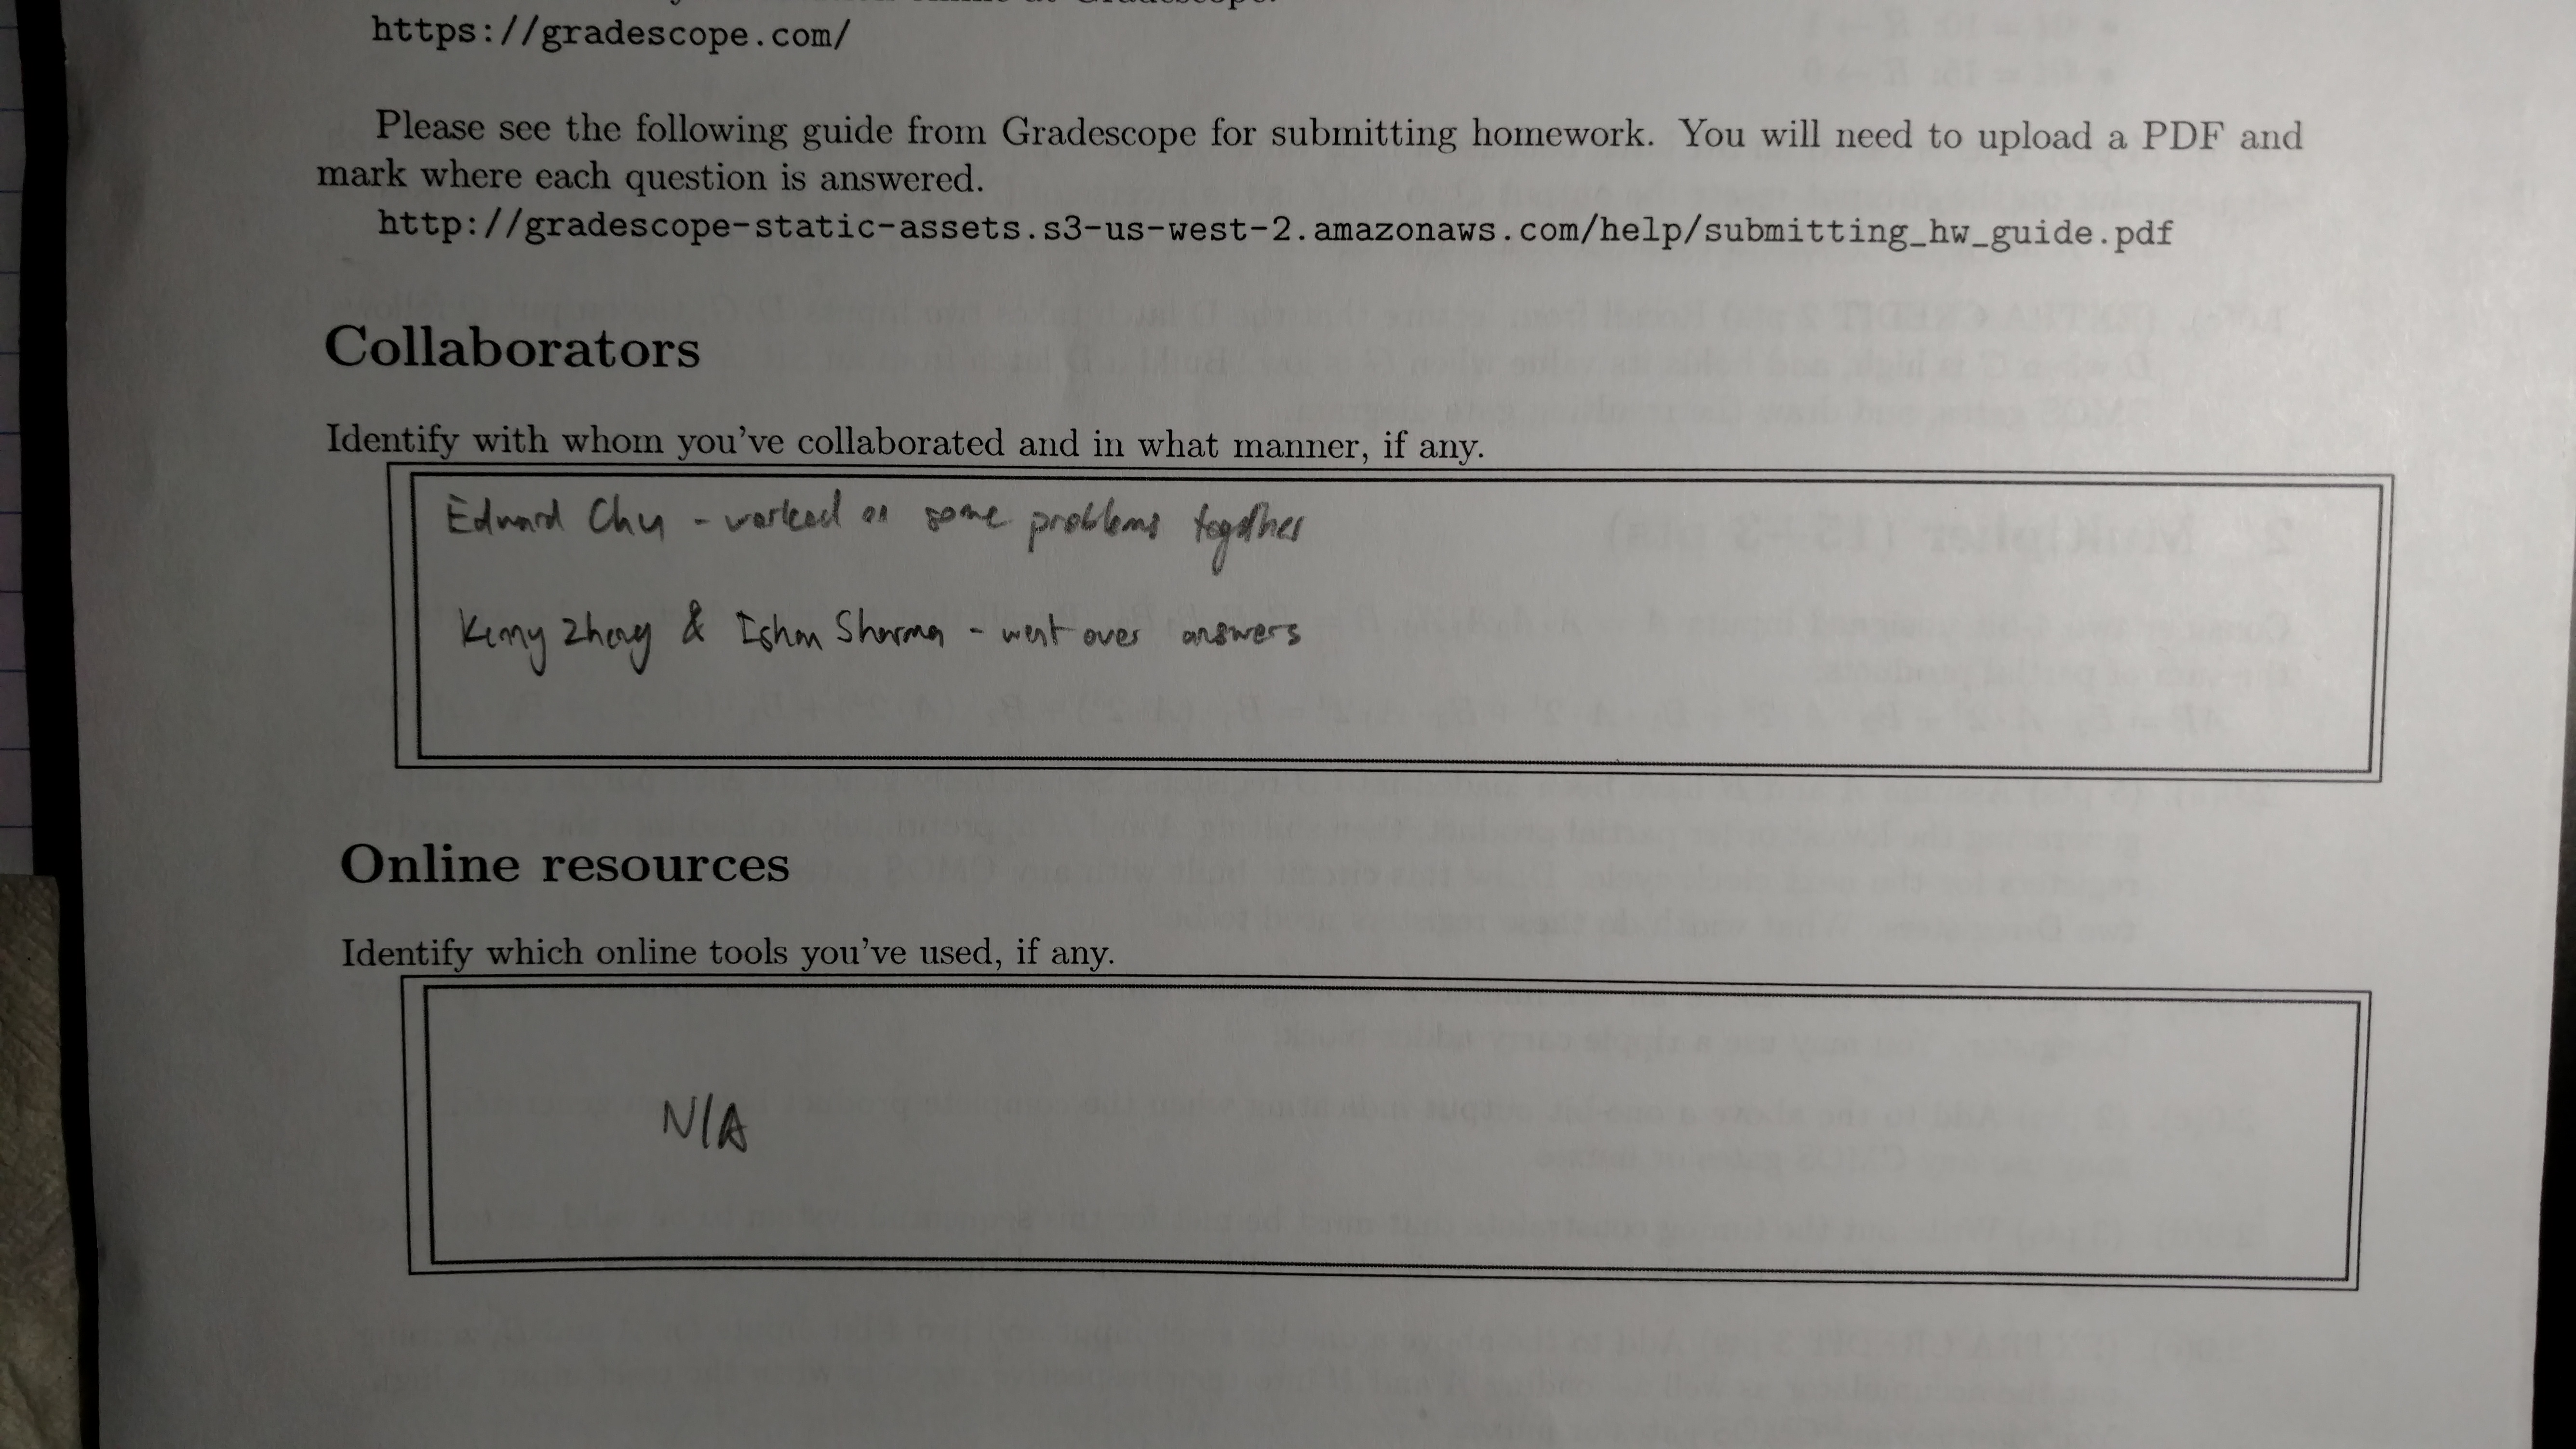 https://gradescope.com/
Please see the following guide from Gradescope for submitting homework. You will need to upload a PDF and
mark where each question is answered.
http://gradescope-static-assets.s3-us-west-2.amazonaws.com/help/submitting_hw_guide.pdf
Collaborators
Identify with whom you've collaborated and in what manner, if any.
Edward Chu - worked on some problems together
Kenny Zheng & Ishan Sharma - went over answers
Online resources
Identify which online tools you've used, if any.
N/A